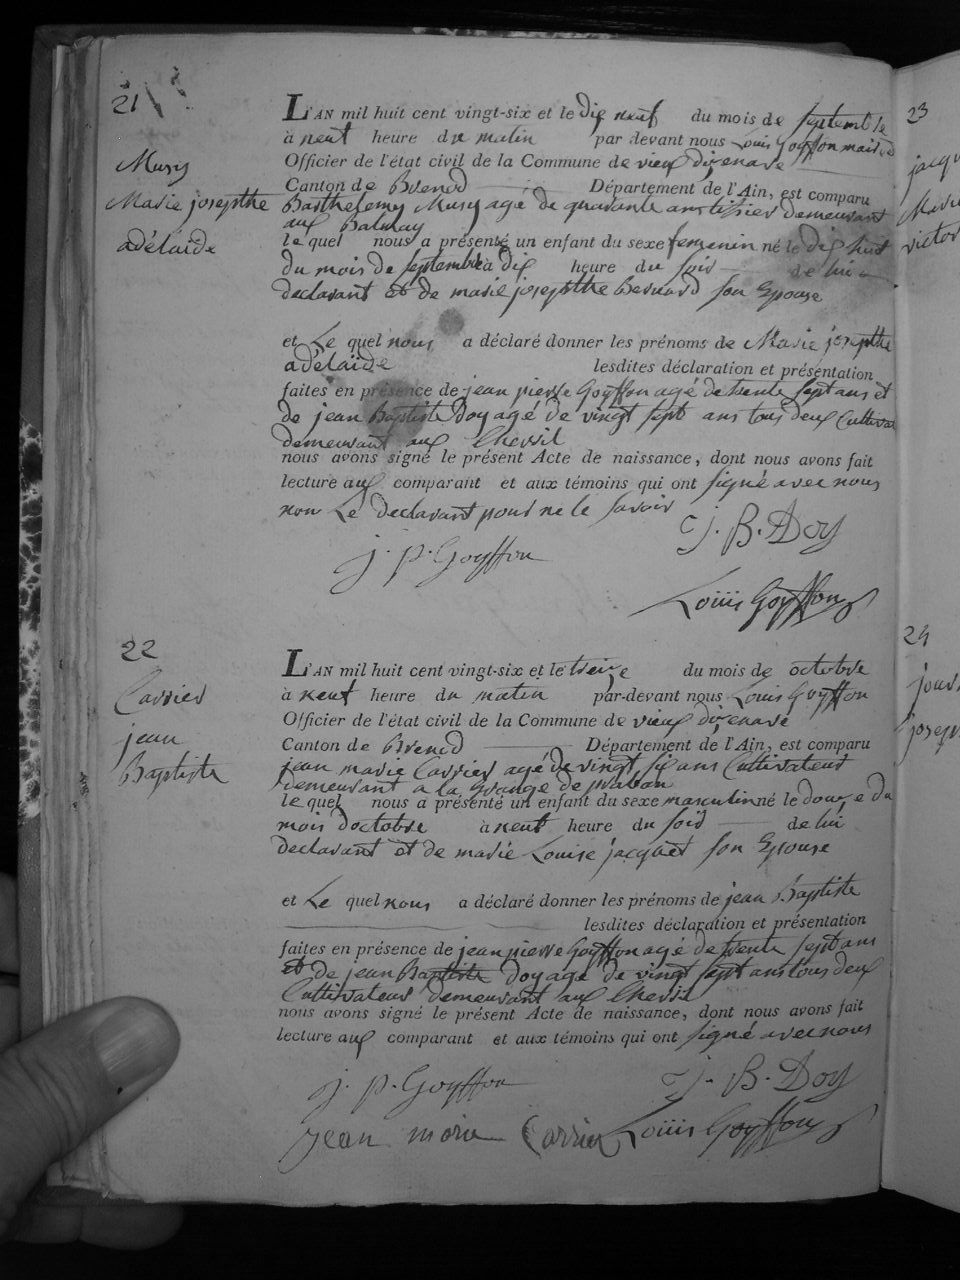 21
Musy
Marie josepthe
adélaïde
L'AN mil huit cent vingt-six et le dix neuf du mois de septembre
à neuf heure du matin par devant nous Louis Goyffon maire
Officier de l'état civil de la Commune de vieux dizenave
Canton de Brenod Département de l'Ain, est comparu
Barthelemy Musy agé de quarante ans tissier demeurant
aux Balmay
le quel nous a présenté un enfant du sexe femenin né le dix huit
du mois de septembre à dix heure du soir de lui
declarant et de marie josepthe Bernard son Epouse
et Le quel nous a déclaré donner les prénoms de Marie josepthe
adélaïde lesdites déclaration et présentation
faites en présence de jean pierre Goyffon agé de trente sept ans et
de jean Baptiste Doy agé de vingt sept ans tous deux Cultivat
demeurant aux Chevril
nous avons signé le présent Acte de naissance, dont nous avons fait
lecture aux comparant et aux témoins qui ont signé avec nous
non Le declarant pour ne le savoir
J. B. Doy
j. p. Goyffon
Louis Goyffon
22
Carrier
jean
Baptiste
L'AN mil huit cent vingt-six et le treize du mois de octobre
à neuf heure du matin par-devant nous Louis Goyffon
Officier de l'état civil de la Commune de vieux dizenave
Canton de Brenod Département de l'Ain, est comparu
jean marie Carrier agé de vingt six ans Cultivateur
demeurant a la Grange de
le quel nous a présenté un enfant du sexe masculin né le douze du
mois d'octobre à neuf heure du soir de lui
declarant et de marie Louise jacquet son Epouse
et Le quel nous a déclaré donner les prénoms de jean Baptiste
lesdites déclaration et présentation
faites en présence de jean pierre Goyffon agé de trente sept ans
et de jean Baptiste Doy agé de vingt sept ans tous deux
Cultivateur demeurant aux Chevril
nous avons signé le présent Acte de naissance, dont nous avons fait
lecture aux comparant et aux témoins qui ont signé avec nous
j. p. Goyffon J. B. Doy
jean marie Carrier Louis Goyffon
23
jacqu
Marie
victor
24
josep